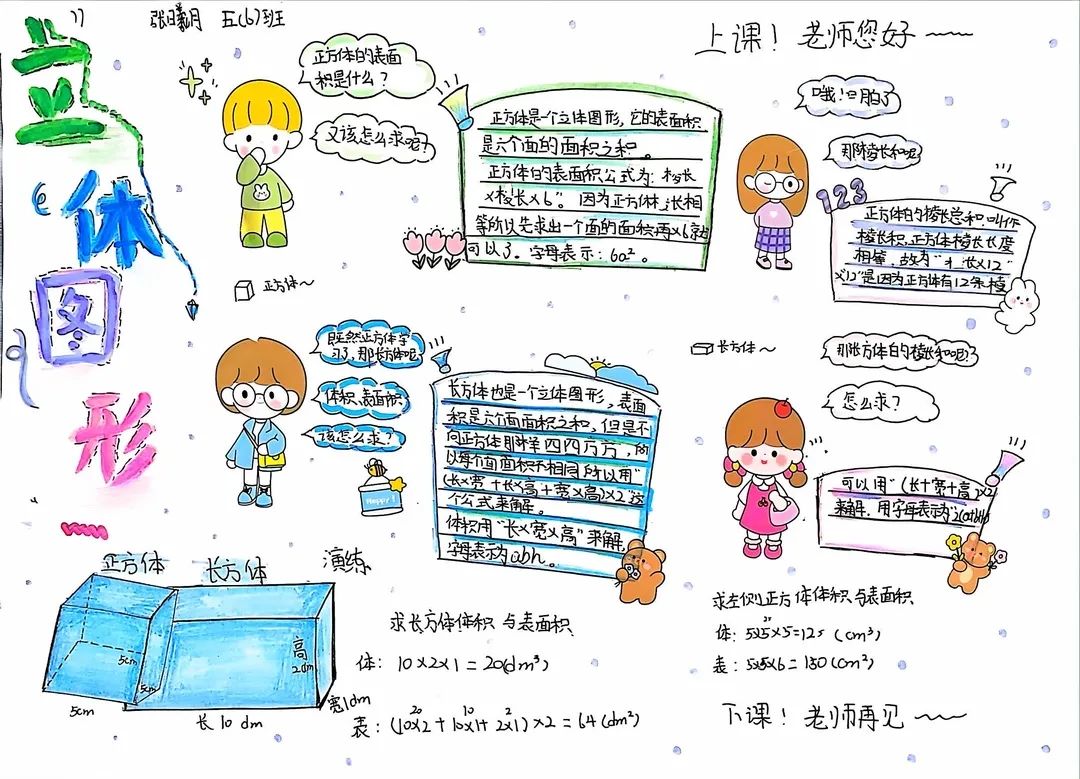 张曦月 五(6)班
立体图形
上课！老师您好
正方体的表面
积是什么？
又该怎么求呢？
正方体是一个立体图形，它的表面积
是六个面的面积之积。
正方体的表面积公式为：棱长
×棱长×6"。因为正方体 长相
等所以先求出一个面的面积再×6就
可以了。字母表示：6a²。
正方体～
哦！明白了
那棱长和呢
123
正方体的棱长总和叫作
棱长积，正方体棱长长度
相等，故为" 长×12"
"×12"是因为正方体有12条棱
既然正方体学
习了，那长方体呢
体积、表面积
该怎么求？
Happy!
长方体也是一个立体图形，表面
积是六个面面积之和，但是不
向正方体那样四四方方，所
以每个面面积不相同所以用"
(长×宽+长×高+宽×高)×2这
个公式来解。
体积用"长×宽×高"来解
字母表示为abh。
长方体～
那长方体的棱长和呢？
怎么求？
可以用"(长+宽+高)×2
来解，用字母表示为
正方体
长方体
演练
5cm
5cm
5cm
高
2dm
宽1dm
长10dm
求长方体体积与表面积
体：10×2×1=20(dm³)
20 10 2
表：(10×2+10×1+2×1)×2=64(dm²)
求左侧正方体体积与表面积
25
体：5×5×5=125(cm³)
表：5×5×6=150(cm²)
下课！老师再见